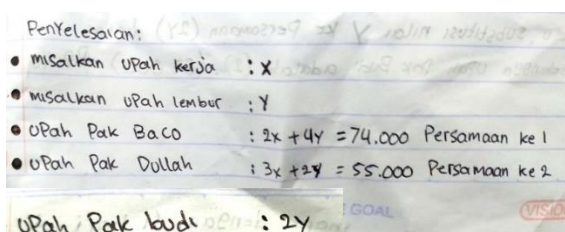 Penyelesaian:
• misalkan upah kerja : x
• misalkan upah lembur : y
• upah Pak Baco : 2x + 4y = 74.000 Persamaan ke 1
• upah Pak Dullah : 3x + 2y = 55.000 Persamaan ke 2
GOAL
VISIO
upah Pak budi : 2y